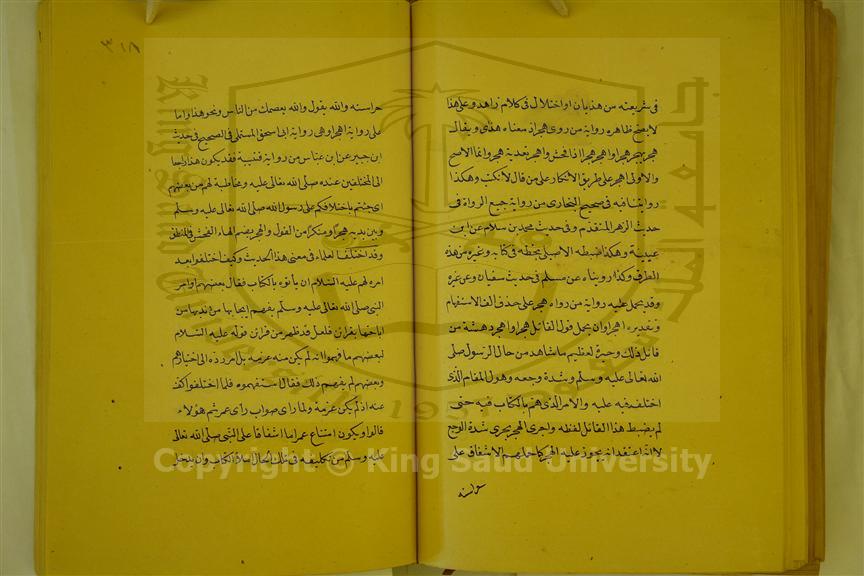 في شريعته من هذيان او اختلال في كلام زاهد وعلى هذا
لا يصح ظاهره رواية من روى هجر اذ معناه هذى ويقال
هجر يهجر هجرا اذا هجر هجرا اذا افحش واهجر تعدية هجر وانما الاصح
والاولى اهجر على طريق الانكار على من قال لا نكتب وهكذا
روايتنا فيه في صحيح البخاري من رواية جميع الرواة في
حديث الزهري المتقدم وفي حديث محمد بن سلام عن ابن
عيينة وهكذا ضبطه الاصيلي بخطه في كتابه وغيره من هذه
الطرق وكذا رويناه عن مسلم في حديث سفيان وعن غيره
وقد يحمل عليه رواية من رواه هجر على حذف الف الاستفهام
وتقديره اهجر او ان يحمل قول القائل هجر او اهجر دهشة من
قائل ذلك وحيرة لعظيم ما شاهد من حال الرسول صلى
الله تعالى عليه وسلم وشدة وجعه وهول المقام الذي
اختلف فيه عليه والامر الذي هم بالكتاب فيه حتى
لم يضبط هذا القائل لفظه واجرى الهجر مجرى شدة الوجع
لا انه اعتقد انه يجوز عليه الهجر كما حملهم الاشفاق على
حراسته
٣١٨
حراسته والله يقول والله يعصمك من الناس ونحو هذا واما
على رواية اهجرا وهي رواية ابي اسحق المستملي في الصحيح في حديث
ابن جبير عن ابن عباس من رواية قتيبة فقد يكون هذا راجعا
الى المختلفين عنده صلى الله تعالى عليه ومخاطبة لهم من بعضهم
اي جئتم باختلافكم على رسول الله صلى الله تعالى عليه وسلم
وبين يديه هجرا ومنكرا من القول والهجر بضم الهاء الفحش في المنطق
وقد اختلف العلماء في معنى هذا الحديث وكيف اختلفوا بعد
امره لهم عليه السلام ان يأتوه بالكتاب فقال بعضهم اوامر
النبي صلى الله تعالى عليه وسلم يفهم ايجابها من ندبها من
اباحتها بقرائن فلعل قد ظهر من قرائن قوله عليه السلام
لبعضهم ما فهموا انه لم يكن منه عزمة بل امر رده الى اختيارهم
وبعضهم لم يفهم ذلك فقال استفهموه فلما اختلفوا كف
عنه اذ لم يكن عزمة ولما رأى صواب رأى عمر ثم هؤلاء
قالوا ويكون امتناع عمر اما اشفاقا على النبي صلى الله تعالى
عليه وسلم من تكليفه في تلك الحال املاء الكتاب وان يدخل
جامعة الملك سعود
1957
Copyright © King Saud University